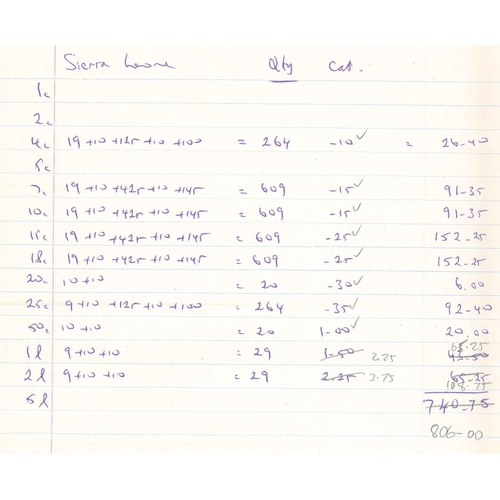 Sierra Leone Qty Cat.
1c
2c
4c 19+10+125+10+100 = 264 -10✓ = 26-40
5c
7c 19+10+425+10+145 = 609 -15✓ 91-35
10c 19+10+425+10+145 = 609 -15✓ 91-35
15c 19+10+425+10+145 = 609 -25✓ 152-25
18c 19+10+425+10+145 = 609 -25✓ 152-25
20c 10+10 = 20 -30✓ 6.00
25c 9+10+125+10+100 = 264 -35✓ 92-40
50c 10+10 = 20 1-00✓ 20.00
65.25
1l 9+10+10 = 29 1-50 2.25 43-50
2l 9+10+10 = 29 2-25 3.75 65-25
108.75
5l 740-75
806-00